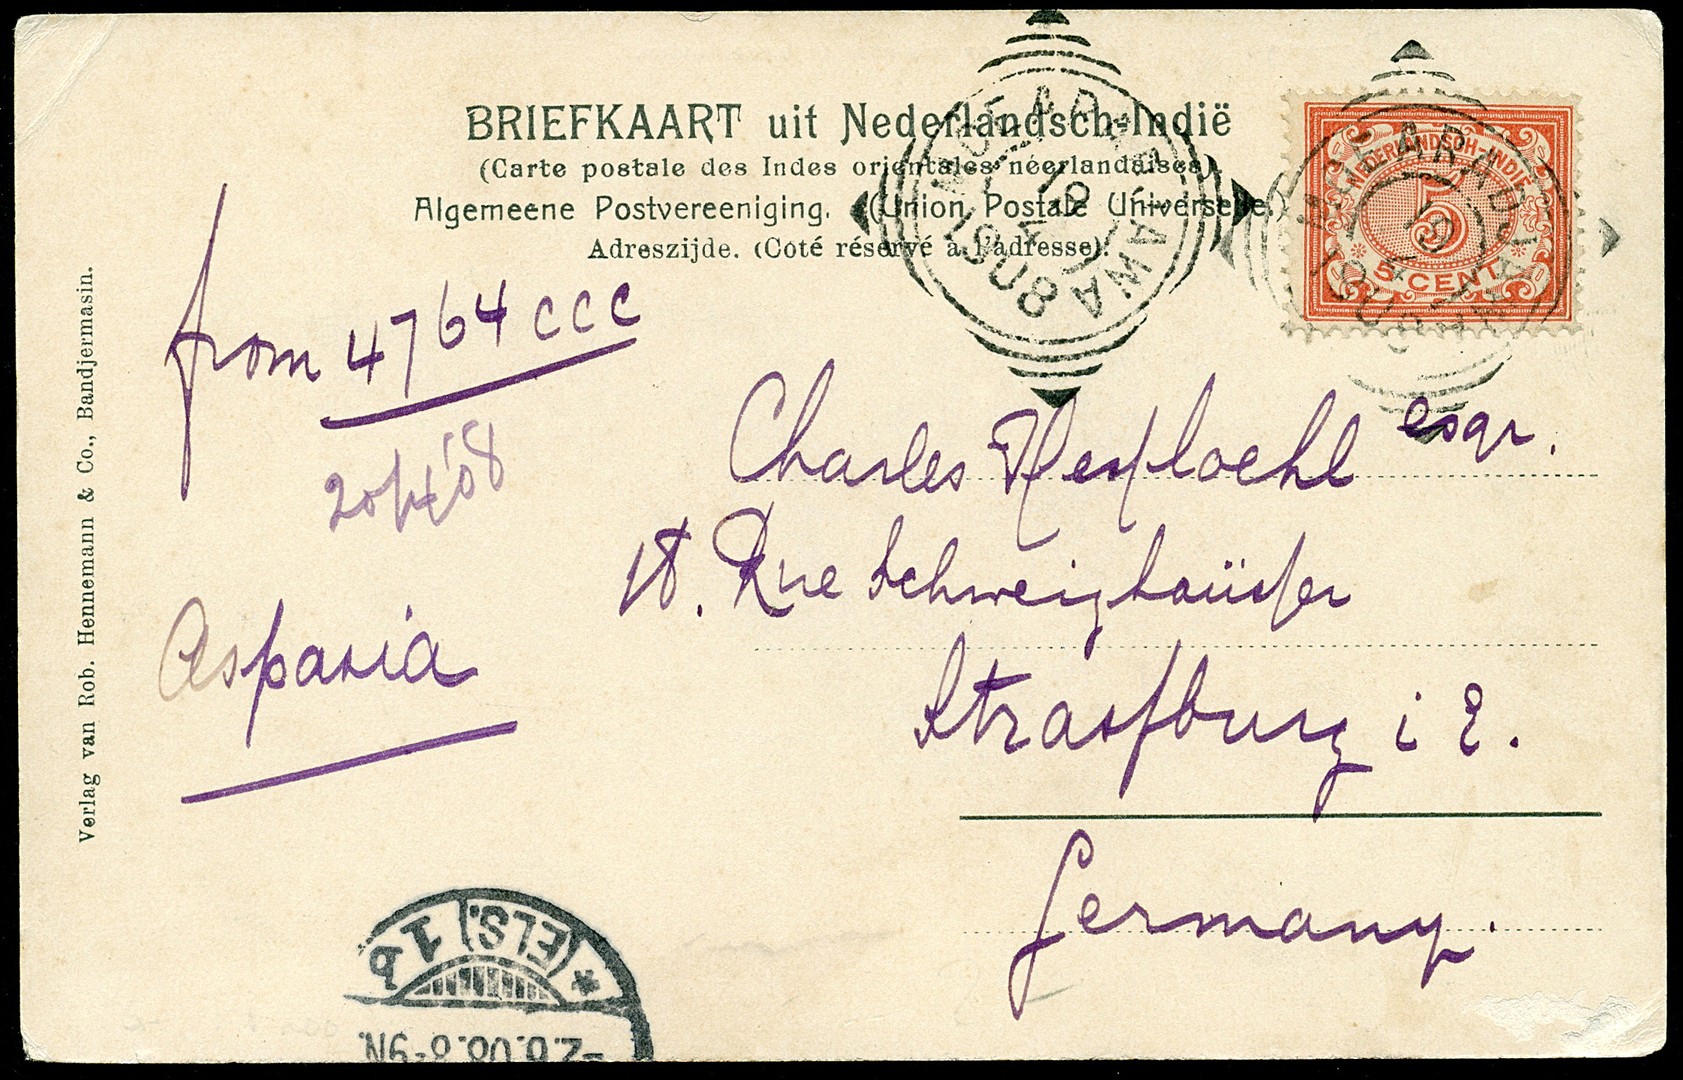 BRIEFKAART uit Nederlandsch-Indië
(Carte postale des Indes orientales néerlandaises).
Algemeene Postvereeniging. (Union Postale Universelle.)
Adreszijde. (Coté réservé à l'adresse).
MOEARADJAWA
19
4
1908
NEDERLANDSCH-INDIË
5
5 CENT
MOEARADJAWA
19
4
from 4764 ccc
20/4 '08
Aspasia
Charles Hessloehl esqr.
18. Rue Schweighaüser
Strassburg i E.
Germany.
Verlag van Rob. Hennemann & Co., Bandjermasin.
* (ELS.) 1 b
-2.6.08.8-9N.